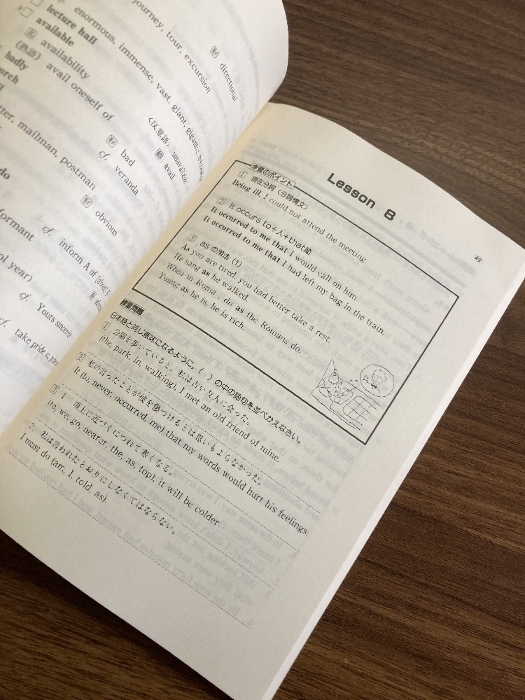 journey, tour, excursion
directional
enormous, immense, vast, giant,
lecture hall
available
availability
avail oneself of
badly
bad
avid
mailman, postman
cf. veranda
obvious
cf. inform A of
cf. Yours
cf. take pride
Lesson 8
49
学習のポイント
① 現在分詞（分詞構文）
Being ill, I could not attend the meeting.
② It occurs to+人+that節
It occurred to me that I would call on him.
It occurred to me that I had left my bag in the train.
③ asの用法 (1)
As you are tired, you had better take a rest.
He sang as he walked.
When in Rome, do as the Romans do.
Young as he is, he is rich.
練習問題
日本語と同じ意味になるように，( ) の中の語句を並べかえなさい。
① 公園を歩いていると，私は古い友人に会った。
(the, park, in, walking), I met an old friend of mine.
② 私の言ったことが彼を傷つけるとは思いもよらなかった。
It (to, never, occurred, me) that my words would hurt his feelings.
③ 頂上に近づくにつれて寒くなる。
(to, we, go, nearer, the, as, top), it will be colder
私は言われたとおりにしなくてはならない。
I must do (am, I, told, as).